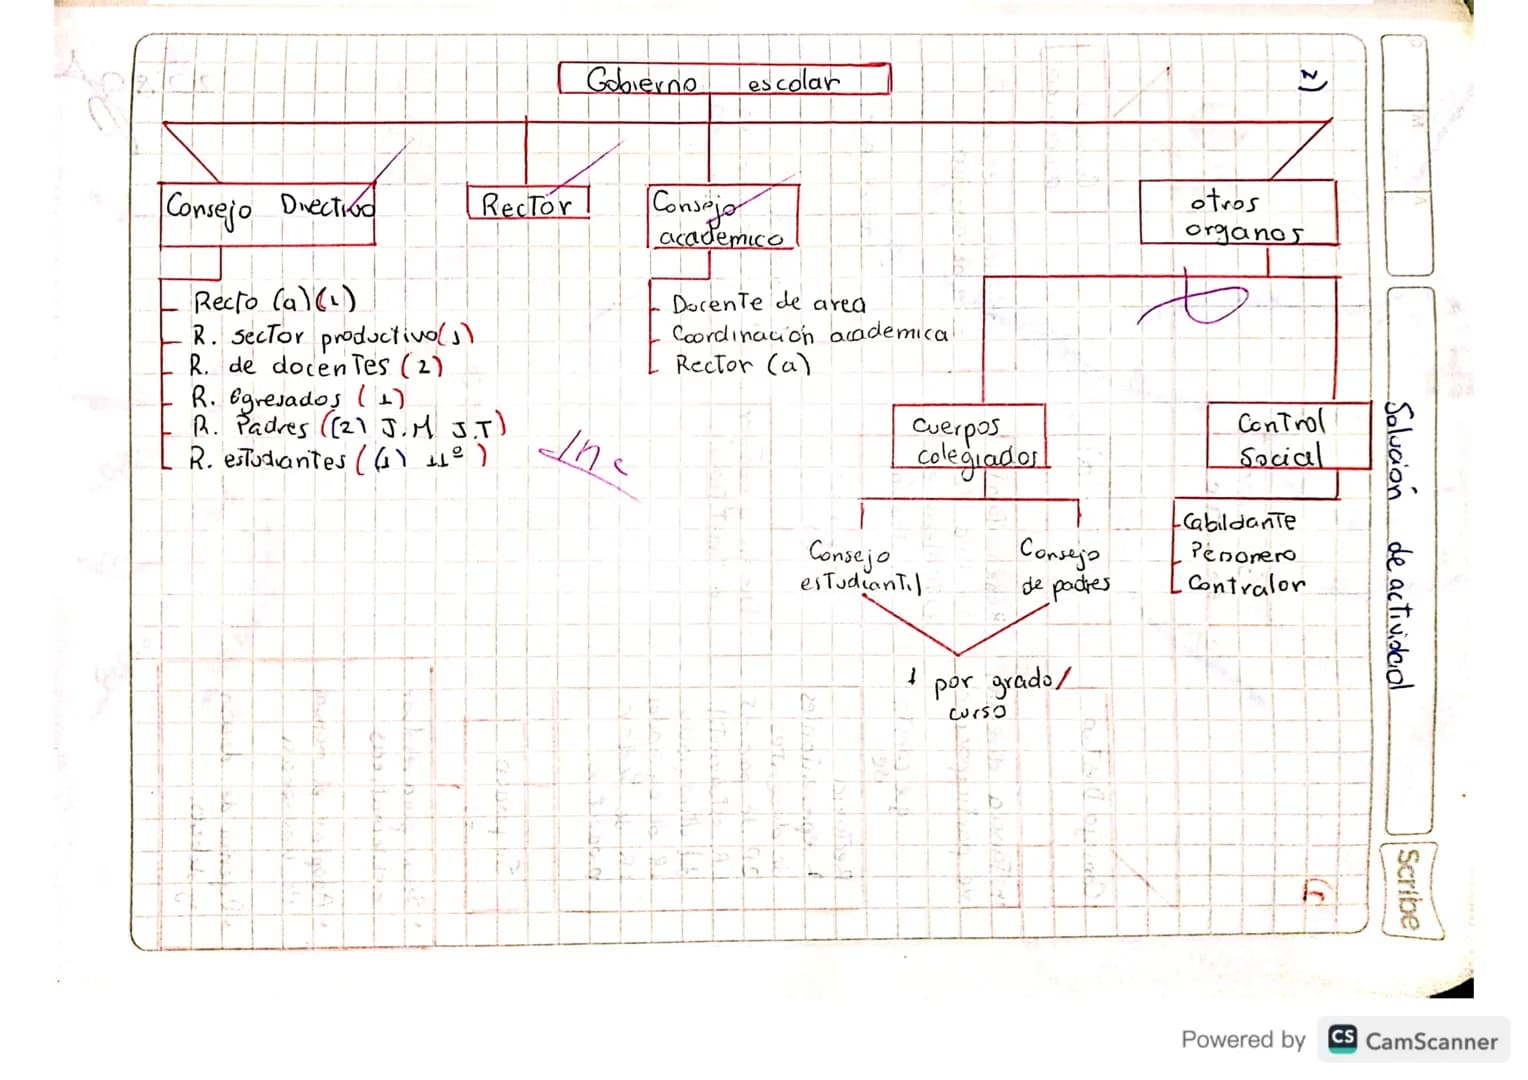 Gobierno escolar
2)
Consejo Directivo
Rector
Consejo
academico
otros
organos
Recto (a)(1)
R. sector productivo(1)
R. de docentes (2)
R. Egresados (1)
R. Padres ((2) J.M J.T)
R. estudiantes ((1) 11º)
Docente de area
Coordinación academica
Rector (a)
Inc
Cuerpos
colegiados
Control
Social
Consejo
estudiantil
Consejo
de padres
Cabildante
Personero
Contralor
1 por grado/
curso
Solución de actividad
Scribe
Powered by CS CamScanner